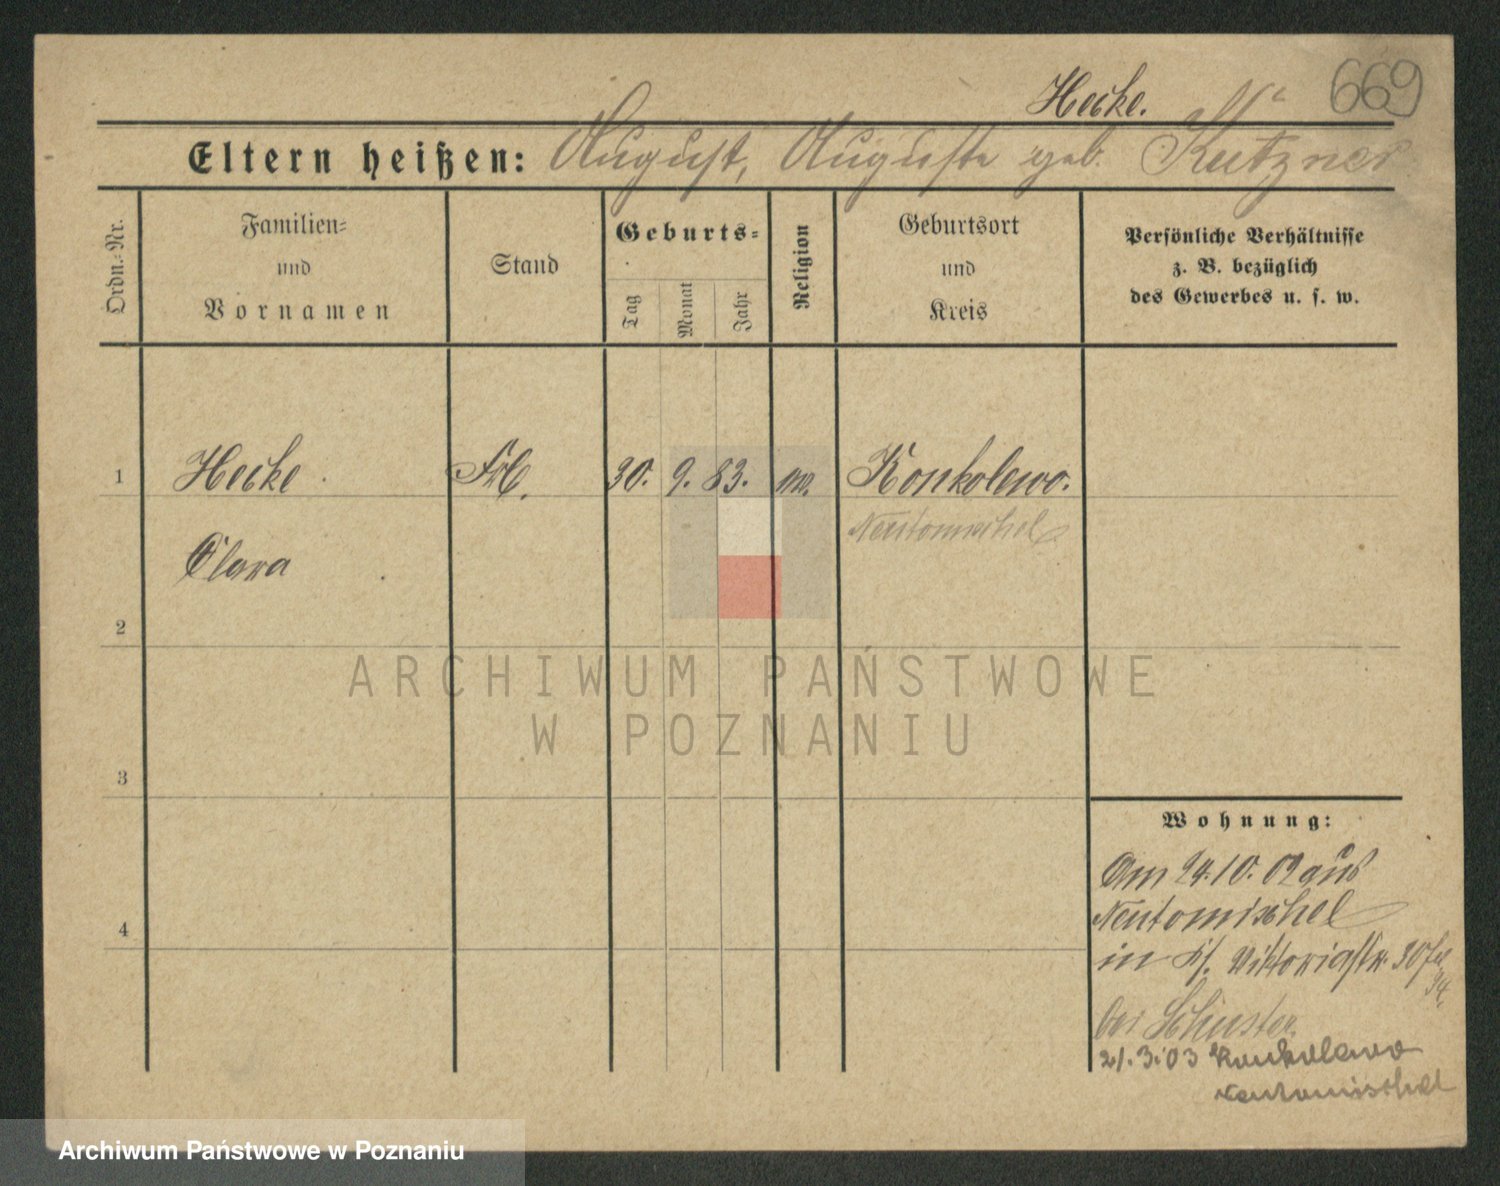 669
Hecke.
Eltern heißen: August, Auguste geb. Kutzner
Ordn.=Nr.
Familien=
und
Vornamen
Stand
Geburts=
Tag
Monat
Jahr
Religion
Geburtsort
und
Kreis
Persönliche Verhältnisse
z. B. bezüglich
des Gewerbes u. s. w.
1 Hecke. 30. 9. 83. Konkolewo.
Neutomischel
Clara
2
ARCHIWUM PAŃSTWOWE
W POZNANIU
3
Wohnung:
Am 24.10.02 aus
4 Neutomischel
in Viktoriastr. 30
bei Schuster
21.3.03 Konkolewo
Neutomischel
Archiwum Państwowe w Poznaniu